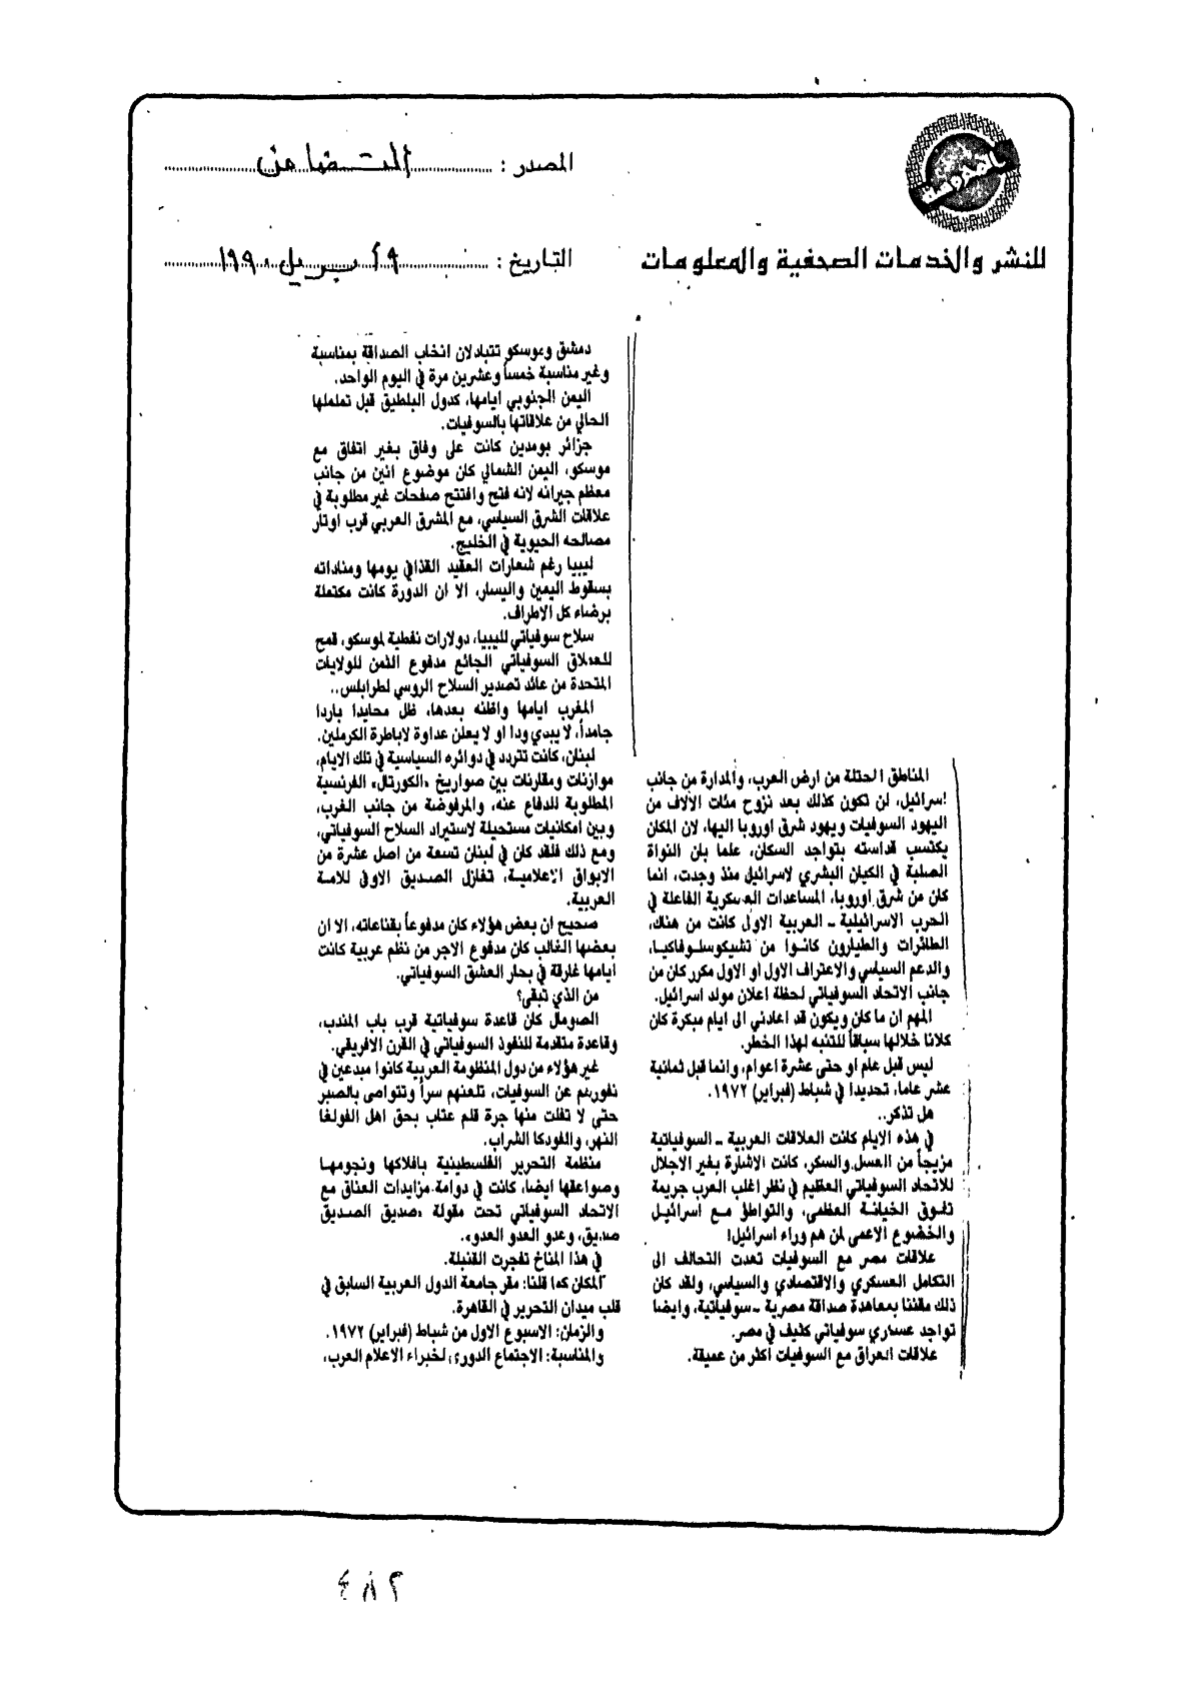 المصدر : التضامن
للنشر والخدمات الصحفية والمعلومات
التاريخ : ٢٩ ابريل ١٩٩٠
المناطق المحتلة من ارض العرب، والمدارة من جانب
اسرائيل، لن تكون كذلك بعد نزوح مئات الآلاف من
اليهود السوفيات ويهود شرق اوروبا اليها، لان المكان
يكتسب قداسته بتواجد السكان، علما بان النواة
الصلبة في الكيان البشري لاسرائيل منذ وجدت، انما
كان من شرق اوروبا، المساعدات العسكرية الفاعلة في
الحرب الاسرائيلية ـ العربية الاولى كانت من هناك،
الطائرات والطيارون كانوا من تشيكوسلوفاكيا،
والدعم السياسي والاعتراف الاول او الاول مكرر كان من
جانب الاتحاد السوفياتي لحظة اعلان مولد اسرائيل.
المهم ان ما كان ويكون قد اعادني الى ايام مبكرة كان
كلانا خلالها سباقاً للتنبه لهذا الخطر.
ليس قبل عام او حتى عشرة اعوام، وانما قبل ثمانية
عشر عاما، تحديدا في شباط (فبراير) ١٩٧٢.
هل تذكر..
في هذه الايام كانت العلاقات العربية ـ السوفياتية
مزيجاً من العسل والسكر، كانت الاشارة بغير الاجلال
للاتحاد السوفياتي العظيم في نظر اغلب العرب جريمة
تفوق الخيانة العظمى، والتواطؤ مع اسرائيل
والخضوع الاعمى لمن هم وراء اسرائيل!
علاقات مصر مع السوفيات تعدت التحالف الى
التكامل العسكري والاقتصادي والسياسي، ولقد كان
ذلك مقننا بمعاهدة صداقة مصرية ـ سوفياتية، وايضا
تواجد عسكري سوفياتي كثيف في مصر.
علاقات العراق مع السوفيات اكثر من عميقة.
دمشق وموسكو تتبادلان انخاب الصداقة بمناسبة
وغير مناسبة خمساً وعشرين مرة في اليوم الواحد.
اليمن الجنوبي ايامها، كدول البلطيق قبل تململها
الحالي من علاقاتها بالسوفيات.
جزائر بومدين كانت على وفاق بغير اتفاق مع
موسكو، اليمن الشمالي كان موضوع انين من جانب
معظم جيرانه لانه فتح وافتتح صفحات غير مطلوبة في
علاقات الشرق السياسي، مع المشرق العربي قرب اوتار
مصالحه الحيوية في الخليج.
ليبيا رغم شعارات العقيد القذافي يومها ومناداته
بسقوط اليمين واليسار، الا ان الدورة كانت مكتملة
برضاء كل الاطراف.
سلاح سوفياتي لليبيا، دولارات نفطية لموسكو، قمح
للعملاق السوفياتي الجائع مدفوع الثمن للولايات
المتحدة من عائد تصدير السلاح الروسي لطرابلس..
المغرب ايامها واظنه بعدها، ظل محايدا باردا
جامداً، لا يبدي ودا او لا يعلن عداوة لاباطرة الكرملين.
لبنان، كانت تتردد في دوائره السياسية في تلك الايام،
موازنات ومقارنات بين صواريخ «الكورتال» الفرنسية
المطلوبة للدفاع عنه، والمرفوضة من جانب الغرب،
وبين امكانيات مستحيلة لاستيراد السلاح السوفياتي،
ومع ذلك فلقد كان في لبنان تسعة من اصل عشرة من
الابواق الاعلامية، تغازل الصديق الاوفى للامة
العربية.
صحيح ان بعض هؤلاء كان مدفوعاً بقناعاته، الا ان
بعضها الغالب كان مدفوع الاجر من نظم عربية كانت
ايامها غارقة في بحار العشق السوفياتي.
من الذي تبقى؟
الصومال كان قاعدة سوفياتية قرب باب المندب،
وقاعدة متقدمة للنفوذ السوفياتي في القرن الافريقي.
غير هؤلاء من دول المنظومة العربية كانوا مبدعين في
نفورهم عن السوفيات، تلعنهم سراً وتتواصى بالصبر
حتى لا تفلت منها جرة قلم عتاب بحق اهل الفولغا
النهر، والفودكا الشراب.
منظمة التحرير الفلسطينية بافلاكها ونجومها
وصواعقها ايضا، كانت في دوامة مزايدات العناق مع
الاتحاد السوفياتي تحت مقولة «صديق الصديق
صديق، وعدو العدو العدو».
في هذا المناخ تفجرت القنبلة.
المكان كما قلنا: مقر جامعة الدول العربية السابق في
قلب ميدان التحرير في القاهرة.
والزمان: الاسبوع الاول من شباط (فبراير) ١٩٧٢.
والمناسبة: الاجتماع الدوري لخبراء الاعلام العرب،